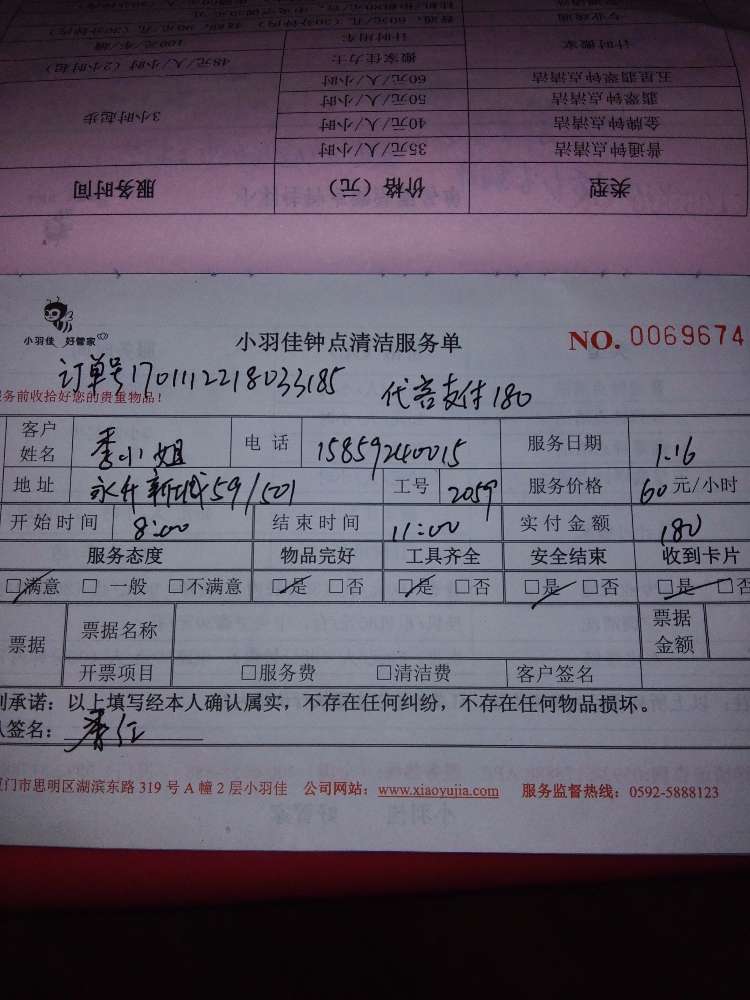 专业疏通 普通：60元/孔（30分钟内）
计时搬家 计时用车 100元/车/辆
搬家佳力士 48元/人/小时（2小时起）
五星翡翠钟点清洁 60元/人/小时 3小时起步
翡翠钟点清洁 50元/人/小时
金牌钟点清洁 40元/人/小时
普通钟点清洁 35元/人/小时
类型 价格（元） 服务时间
小羽佳 好管家
小羽佳钟点清洁服务单 NO. 0069674
订单号1701112218033185
务前收拾好您的贵重物品！ 支付180
客户姓名 季小姐 电话 15859240015 服务日期 1.16
地址 永升新城59/501 工号 2059 服务价格 60元/小时
开始时间 8:00 结束时间 11:00 实付金额 180
服务态度 物品完好 工具齐全 安全结束 收到卡片
□满意 □一般 □不满意 □是 □否 □是 □否 □是 □否 □是 □否
票据 票据名称 票据金额
开票项目 □服务费 □清洁费 客户签名
承诺：以上填写经本人确认属实，不存在任何纠纷，不存在任何物品损坏。
签名：
门市思明区湖滨东路 319 号 A 幢 2 层小羽佳 公司网站：www.xiaoyujia.com 服务监督热线：0592-5888123